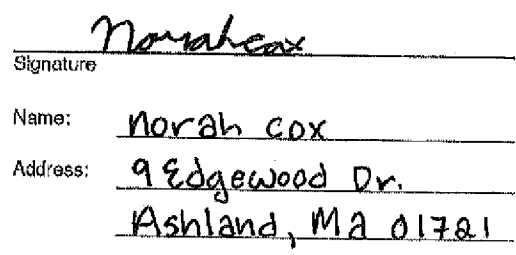 Norah Cox
Signature
Name: Norah Cox
Address: 9 Edgewood Dr.
Ashland, Ma 01721